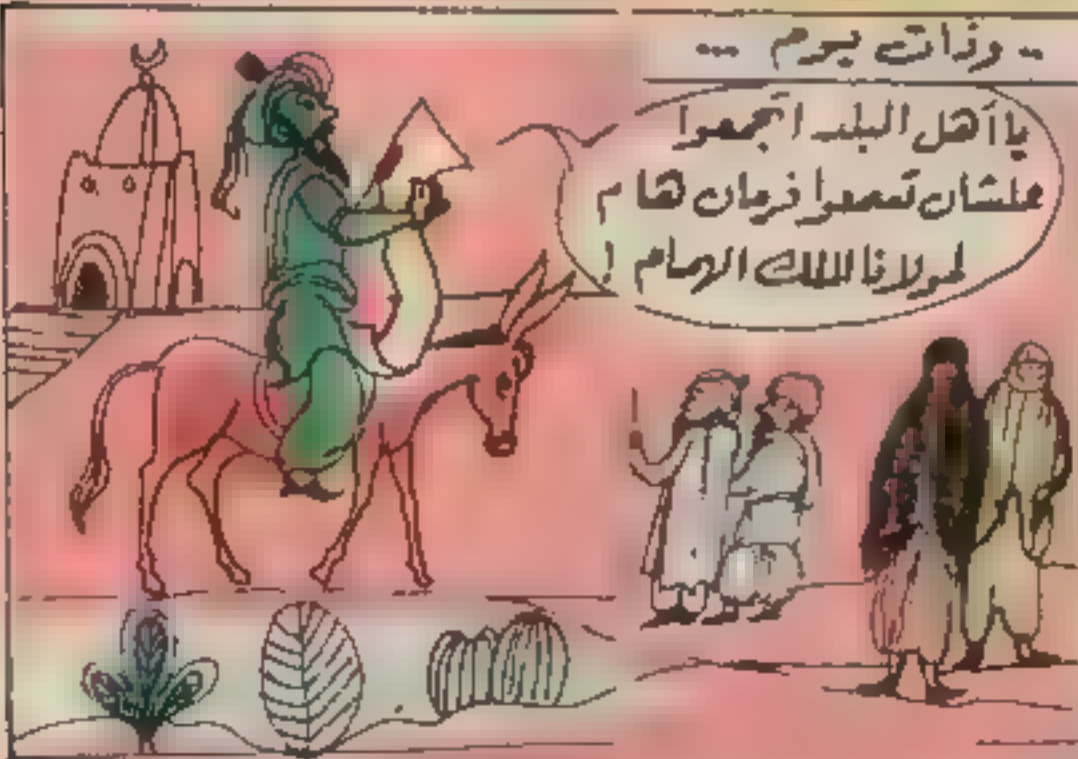 .. وذات يوم ...
يا أهل البلد اتجمعوا
علشان تسمعوا فرمان هام
لمولانا الملك الهمام !